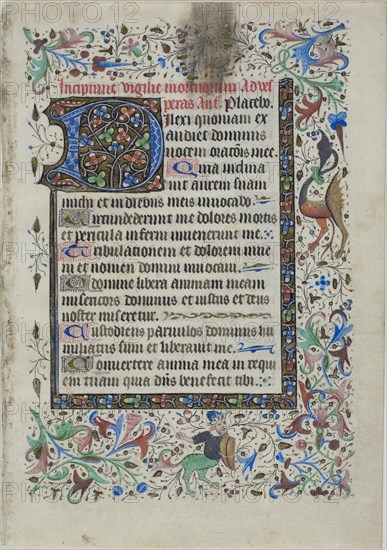 Incipiunt vigilie mortuorum Ad ves
peras Ant. Placebo.
Dilexi quoniam ex
audiet dominus
vocem orationis mee.
Quia inclina
uit aurem suam
michi et in diebus meis inuocabo.
Circumdederunt me dolores mortis
et pericula inferni inuenerunt me.
Tribulationem et dolorem inue
ni et nomen domini inuocaui.
O domine libera animam meam
misericors dominus et iustus et deus
noster miseretur.
Custodiens paruulos dominus hu
miliatus sum et liberauit me.
Conuertere anima mea in requi
em tuam quia dns benefecit tibi.
PHOTO 12